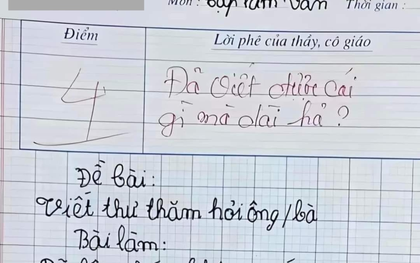 Môn: Tập làm văn Thời gian:
Điểm Lời phê của thầy, cô giáo
4
Đã viết được cái
gì mà dài hả?
Đề bài:
Viết thư thăm hỏi ông/bà
Bài làm: